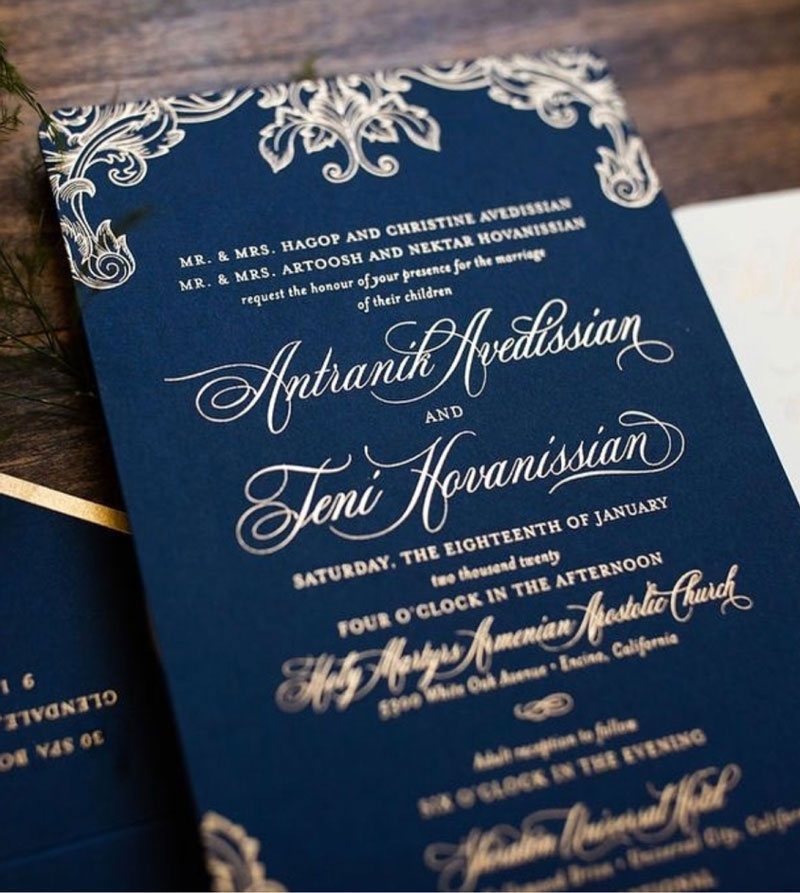 MR. & MRS. HAGOP AND CHRISTINE AVEDISSIAN
MR. & MRS. ARTOOSH AND NEKTAR HOVANISSIAN
request the honour of your presence for the marriage
of their children
Antranik Avedissian
AND
Teni Hovanissian
SATURDAY, THE EIGHTEENTH OF JANUARY
two thousand twenty
FOUR O'CLOCK IN THE AFTERNOON
Holy Martyrs Armenian Apostolic Church
5300 White Oak Avenue · Encino, California
Adult reception to follow
SIX O'CLOCK IN THE EVENING
Sheraton Universal Hotel
Universal City
GLENDALE,